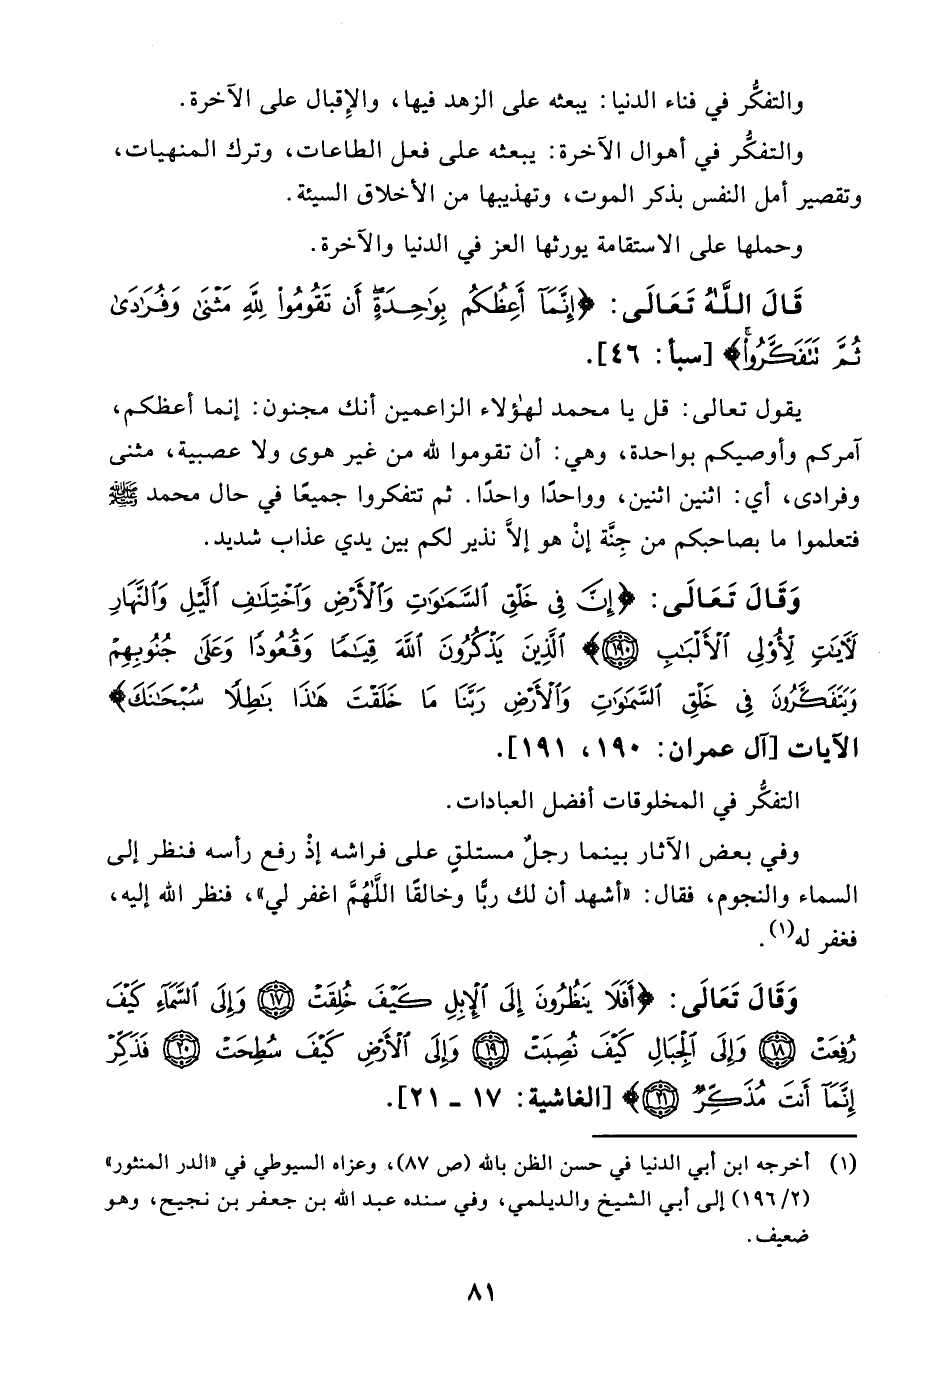 والتفكُّر في فناء الدنيا: يبعثه على الزهد فيها، والإقبال على الآخرة.
والتفكُّر في أهوال الآخرة: يبعثه على فعل الطاعات، وترك المنهيات،
وتقصير أمل النفس بذكر الموت، وتهذيبها من الأخلاق السيئة.
وحملها على الاستقامة يورثها العز في الدنيا والآخرة.
قَالَ اللَّهُ تَعَالَى: ﴿إِنَّمَآ أَعِظُكُم بِوَٰحِدَةٍۖ أَن تَقُومُواْ لِلَّهِ مَثۡنَىٰ وَفُرَٰدَىٰ
ثُمَّ تَتَفَكَّرُواْۚ﴾ [سبأ: ٤٦].
يقول تعالى: قل يا محمد لهؤلاء الزاعمين أنك مجنون: إنما أعظكم،
آمركم وأوصيكم بواحدة، وهي: أن تقوموا لله من غير هوى ولا عصبية، مثنى
وفرادى، أي: اثنين اثنين، وواحدًا واحدًا. ثم تتفكروا جميعًا في حال محمد ﷺ
فتعلموا ما بصاحبكم من جِنَّة إنْ هو إلاَّ نذير لكم بين يدي عذاب شديد.
وَقَالَ تَعَالَى: ﴿إِنَّ فِي خَلۡقِ ٱلسَّمَٰوَٰتِ وَٱلۡأَرۡضِ وَٱخۡتِلَٰفِ ٱلَّيۡلِ وَٱلنَّهَارِ
لَأٓيَٰتٖ لِّأُوْلِي ٱلۡأَلۡبَٰبِ ۝١٩٠﴾ ٱلَّذِينَ يَذۡكُرُونَ ٱللَّهَ قِيَٰمٗا وَقُعُودٗا وَعَلَىٰ جُنُوبِهِمۡ
وَيَتَفَكَّرُونَ فِي خَلۡقِ ٱلسَّمَٰوَٰتِ وَٱلۡأَرۡضِ رَبَّنَا مَا خَلَقۡتَ هَٰذَا بَٰطِلٗا سُبۡحَٰنَكَ﴾
الآيات [آل عمران: ١٩٠، ١٩١].
التفكُّر في المخلوقات أفضل العبادات.
وفي بعض الآثار بينما رجلٌ مستلقٍ على فراشه إذْ رفع رأسه فنظر إلى
السماء والنجوم، فقال: «أشهد أن لك ربًّا وخالقًا اللَّهُمَّ اغفر لي»، فنظر الله إليه،
فغفر له(١).
وَقَالَ تَعَالَى: ﴿أَفَلَا يَنظُرُونَ إِلَى ٱلۡإِبِلِ كَيۡفَ خُلِقَتۡ ۝١٧ وَإِلَى ٱلسَّمَآءِ كَيۡفَ
رُفِعَتۡ ۝١٨ وَإِلَى ٱلۡجِبَالِ كَيۡفَ نُصِبَتۡ ۝١٩ وَإِلَى ٱلۡأَرۡضِ كَيۡفَ سُطِحَتۡ ۝٢٠ فَذَكِّرۡ
إِنَّمَآ أَنتَ مُذَكِّرٞ ۝٢١﴾ [الغاشية: ١٧ ـ ٢١].
(١) أخرجه ابن أبي الدنيا في حسن الظن بالله (ص ٨٧)، وعزاه السيوطي في «الدر المنثور»
(٢/ ١٩٦) إلى أبي الشيخ والديلمي، وفي سنده عبد الله بن جعفر بن نجيح، وهو
ضعيف.
٨١